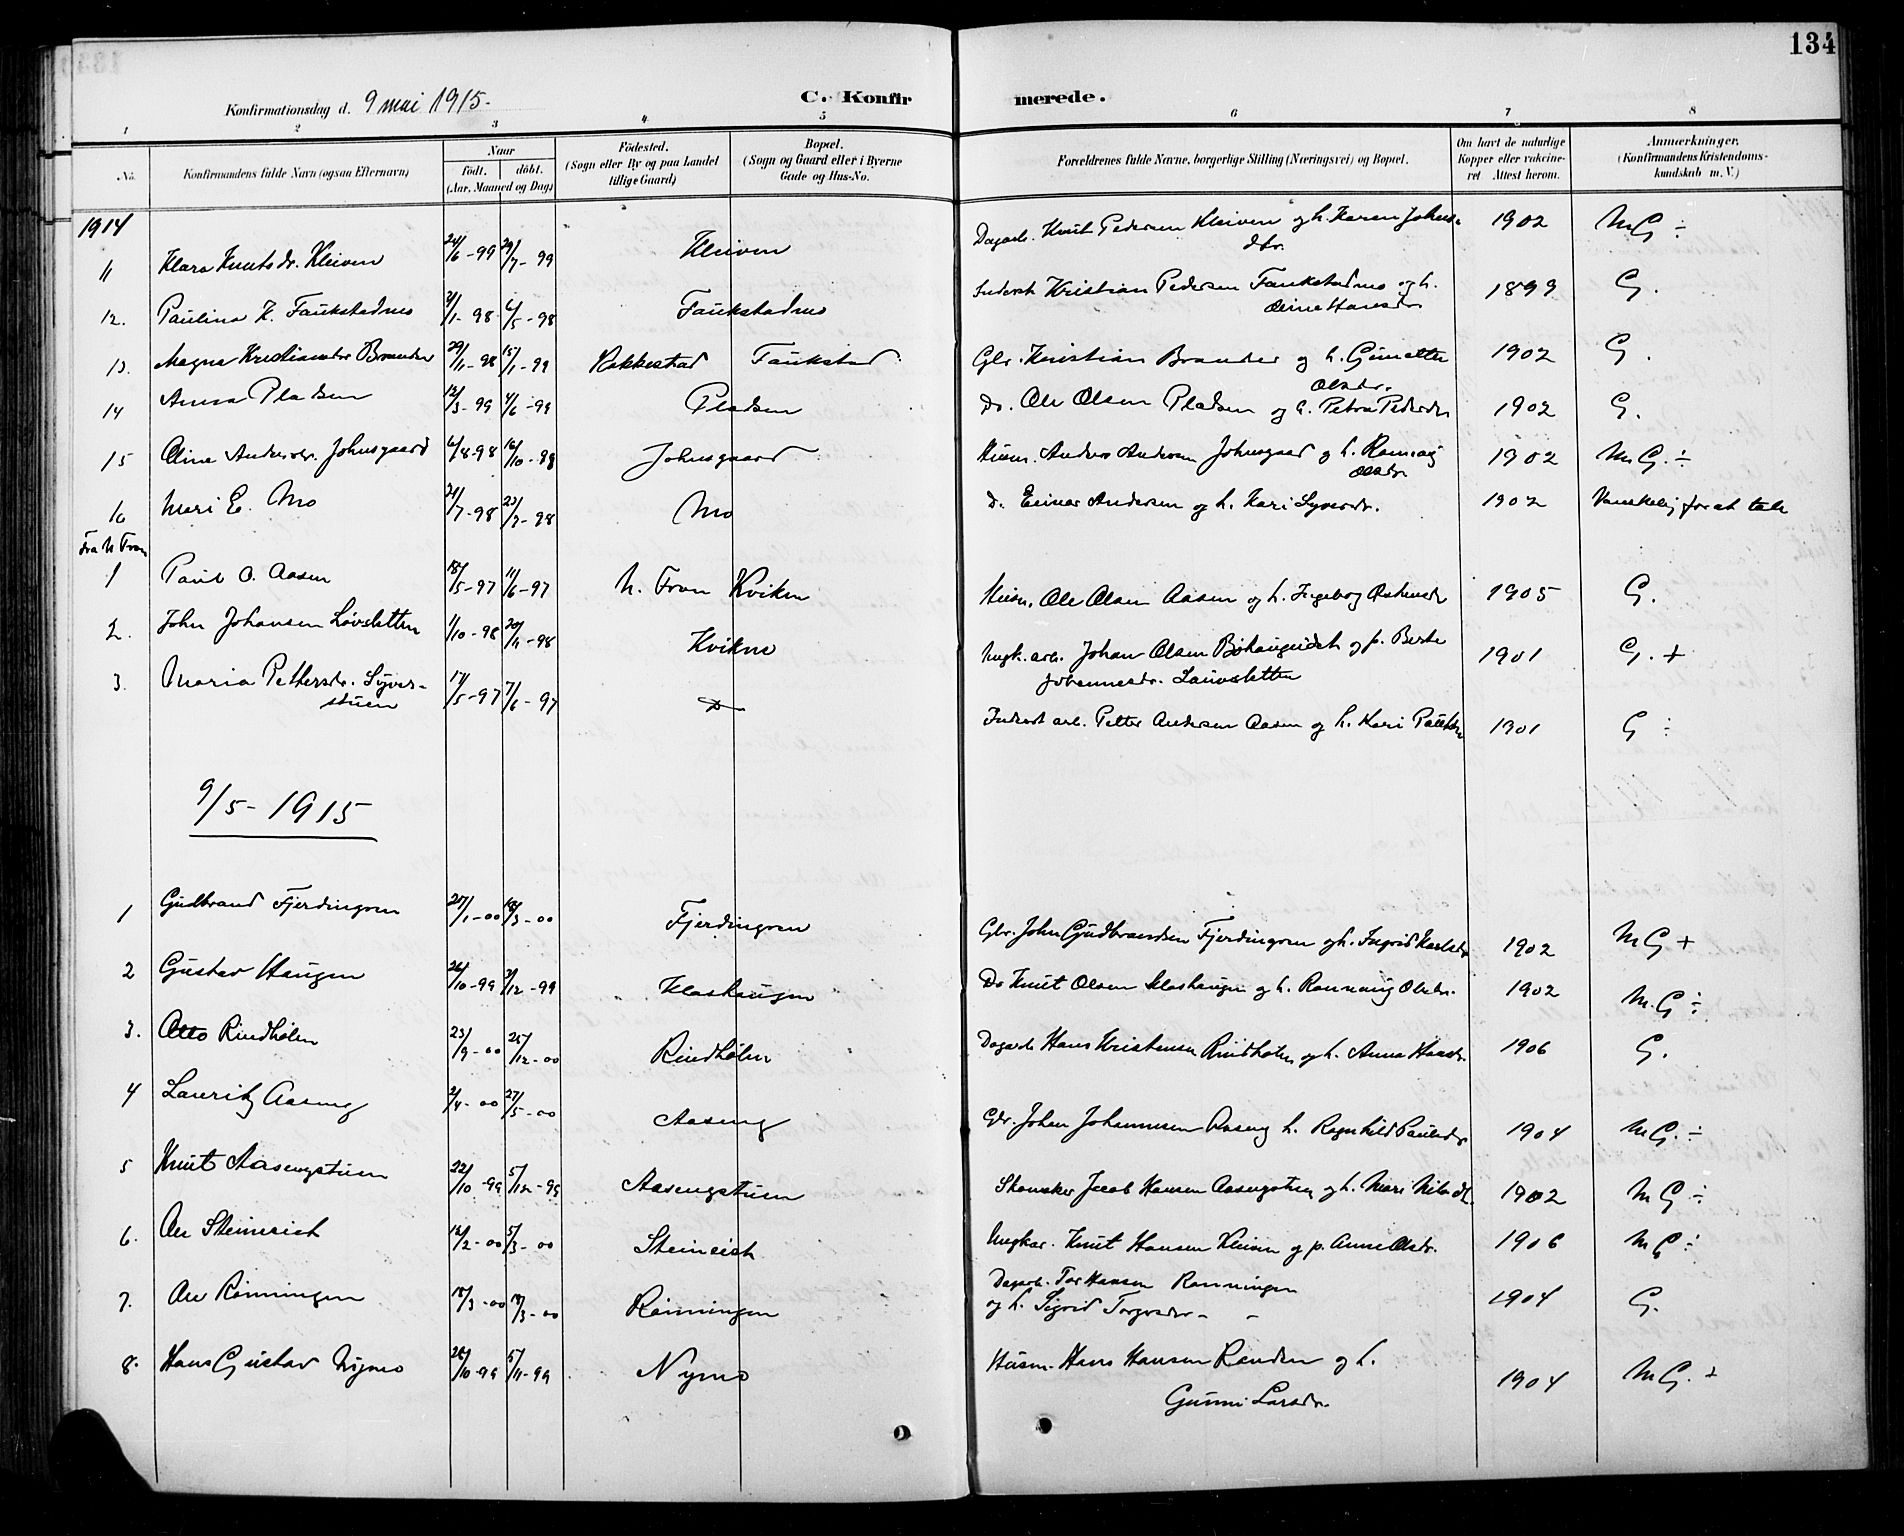 134
Konfirmationsdag d. 9 mai 1915.
C. Konfirmerede.
1 2 3 4 5 6 7 8
No. Konfirmandens fulde Navn (ogsaa Efternavn) Naar født. døbt. (Aar, Maaned og Dag) Fødested. (Sogn eller By og paa Landet tillige Gaard) Bopæl. (Sogn og Gaard eller i Byerne Gade og Hus-No. Forældrenes fulde Navne, borgerlige Stilling (Næringsvei) og Bopæl. Om havt de naturlige Kopper eller vakcineret Attest herom. Anmærkninger. (Konfirmandens Kristendomskundskab m. V.)
1914
11 Klara Knutsdr. Kleiven 24/6-99 29/7-99 Kleiven Dagarb. Knut Pedersen Kleiven og h. Karen Johnsdtr. 1902 MG ÷
12. Paulina K. Faukstadmo 2/1-98 6/5-98 Faukstadmo Inderst Kristian Pedersen Faukstadmo og h. Oline Hansdr 1899 G.
13. Magna Kristiansdtr Brander 29/11-98 15/1-99 Rakkestad Faukstad Gbr. Kristian Brander og h. Olsdr. 1902 G.
14 Anna Pladsen 13/3-99 4/6-99 Pladsen Do. Ole Olsen Pladsen og h. Petra Pedersdr 1902 G.
15 Oline Andersdr. Johnsgaard 6/8-98 16/10-98 Johnsgaard Husm. Anders Andersen Johnsgaard og h. Rannveig Olsdr 1902 M.G. ÷
16 Mari E. Mo 21/7-98 23/7-98 Mo D. Einar Andersen og h. Kari Syversdr. 1902 Vanskelig for at tale
Fra N Fron
1 Paul O. Aasen 18/5-97 11/6-97 N. Fron Kvikne Husm. Ole Olsen Aasen og h. Ingeborg Østensdr 1905 G.
2. John Johansen Løvsletten 1/10-98 20/11-98 Kvikne Ungk. arb. Johan Olsen og p. Berte Johannesdr. Lauvsletten 1901 G. +
3. Maria Pettersdr. Syverstuen 17/5-97 7/6-97 Inderst arb. Petter Andersen Aasen og h. Kari 1901 G ÷
9/5-1915
1 Gudbrand Fjerdingren 27/1-00 18/3-00 Fjerdingren Gbr. John Gudbrandsen Fjerdingren og h. Ingrid Karlsdr 1902 MG +
2 Gustav Haugen 26/10-99 31/12-99 Klashaugen Do Knut Olsen Klashaugen og h. Rannveig Olsdr. 1902 M.G ÷
3. Otto Rindhølen 23/9-00 25/12-00 Rindhølen Dagarb Hans Kristensen Rindhølen og h. Anna Hansdr. 1906 G.
4 Lauritz Aaseng 2/4-00 27/5-00 Aaseng Gbr. Johan Johannesen Aaseng h. Ragnhild Paulsdr 1904 MG. ÷
5 Knut Aasengstuen 22/10-99 5/12-99 Aasengstuen Skomaker Jacob Hansen Aasengstuen og h. Mari Nilsdt. 1902 MG ÷
6. Ole Steineiet 12/2-00 5/3-00 Steineiet Ungkar. Knut Hansen Kleiven og p. Anne Olsdr. 1906 MG ÷
7. Ole Rønningen 15/3-00 18/3-00 Rønningen Dagarb. Tor Hansen Rønningen og h. Sigrid Torgersdr - - 1904 G.
8. Hans Gustav Nymo 28/10-99 5/11-99 Nymo Husm. Hans Hansen Randen og h. Gunni Larsdr. 1904 MG. +